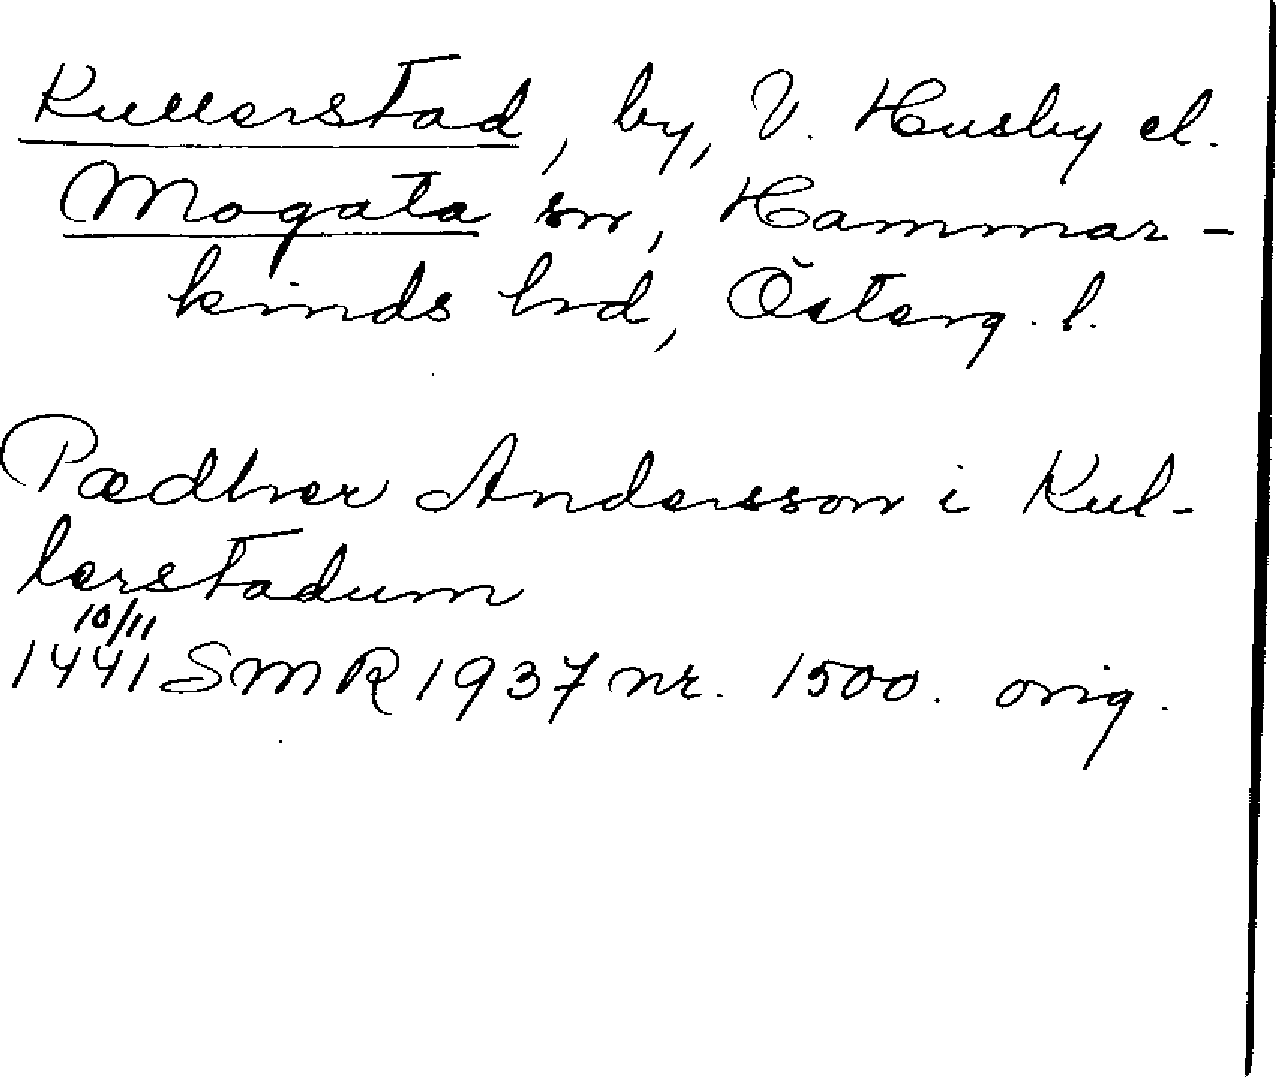 Kullerstad, by, V. Husby el.
Mogata sn, Hammar-
kinds hd, Österg. l.
Pædher Andersson i Kul-
lerstadum
10/11
1441 SMR 1937 nr. 1500. orig.